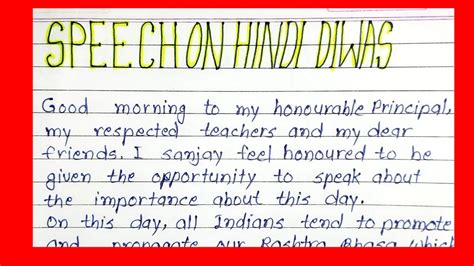 SPEECH ON HINDI DIWAS
Good morning to my honourable Principal,
my respected teachers and my dear
friends. I sanjay feel honoured to be
given the opportunity to speak about
the importance about this day.
On this day, all Indians tend to promote
and propagate our Rashtra Bhasa which